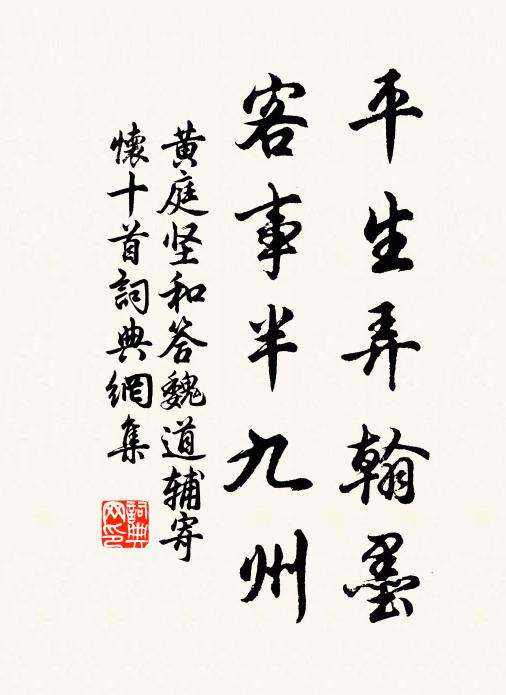 平生弄翰墨
客事半九州
黄庭坚和答魏道辅寄
懷十首詞典網集
詞典
网印